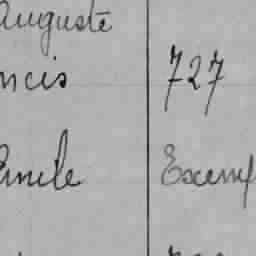 Auguste
ncis 727
Emile Exemp